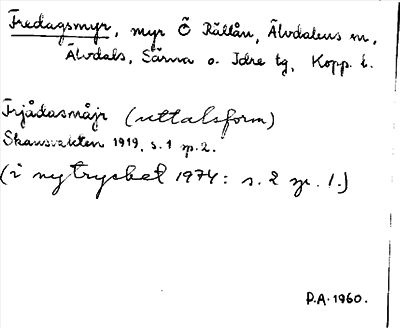 Fredagsmyr, myr Ö Rällån, Älvdalens sn,
Älvdals, Särna o. Idre tg, Kopp. l.
Frjådasmåjr (uttalsform)
Skansvakten 1919, s. 1 sp. 2.
(i nytrycket 1974: s. 2 sp. 1.)
P.A. 1960.